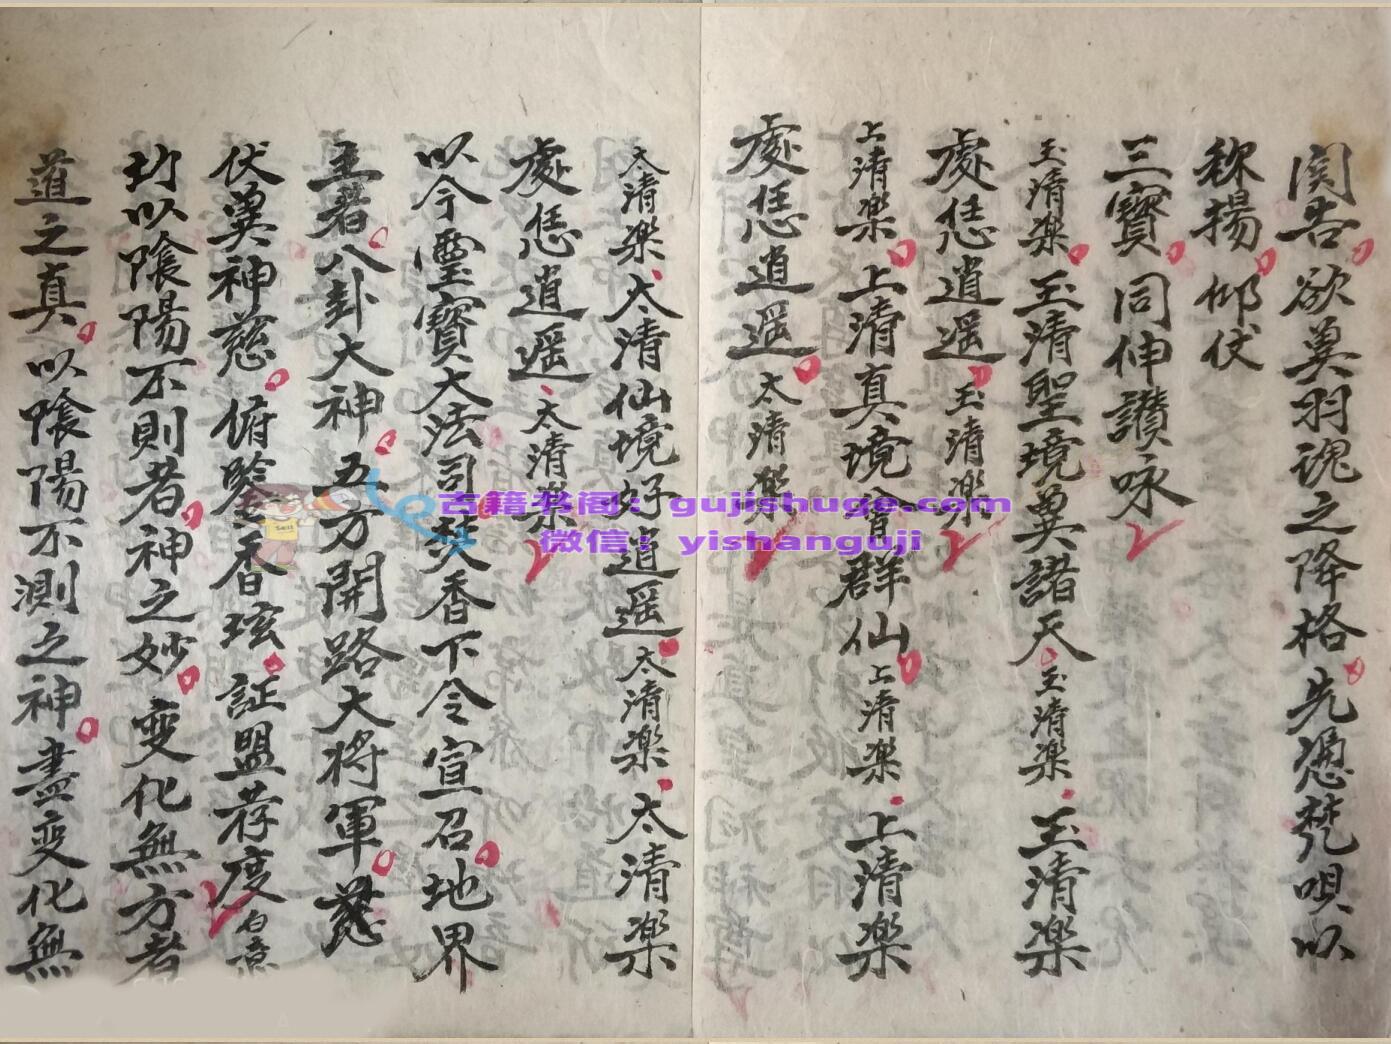 関告欲冀羽魂之降格先憑梵唄以
称揚仰伏
三寳同伸讃咏
玉清楽玉清聖境冀諸天玉清楽玉清楽
處恁逍遥玉清楽
上清楽上清真境會群仙上清楽上清楽
處恁逍遥太清楽
太清楽太清仙境好逍遥太清楽太清楽
處恁逍遥太清楽
以今霊寳大法司焚香下令宣召地界
主者八卦大神五方開路大将軍
伏冀神慈俯臨香 証盟荐度白意
切以陰陽不則者神之妙变化無方者
道之真以陰陽不測之神盡变化無
古籍书阁：gujishuge.com
微信：yishanguji